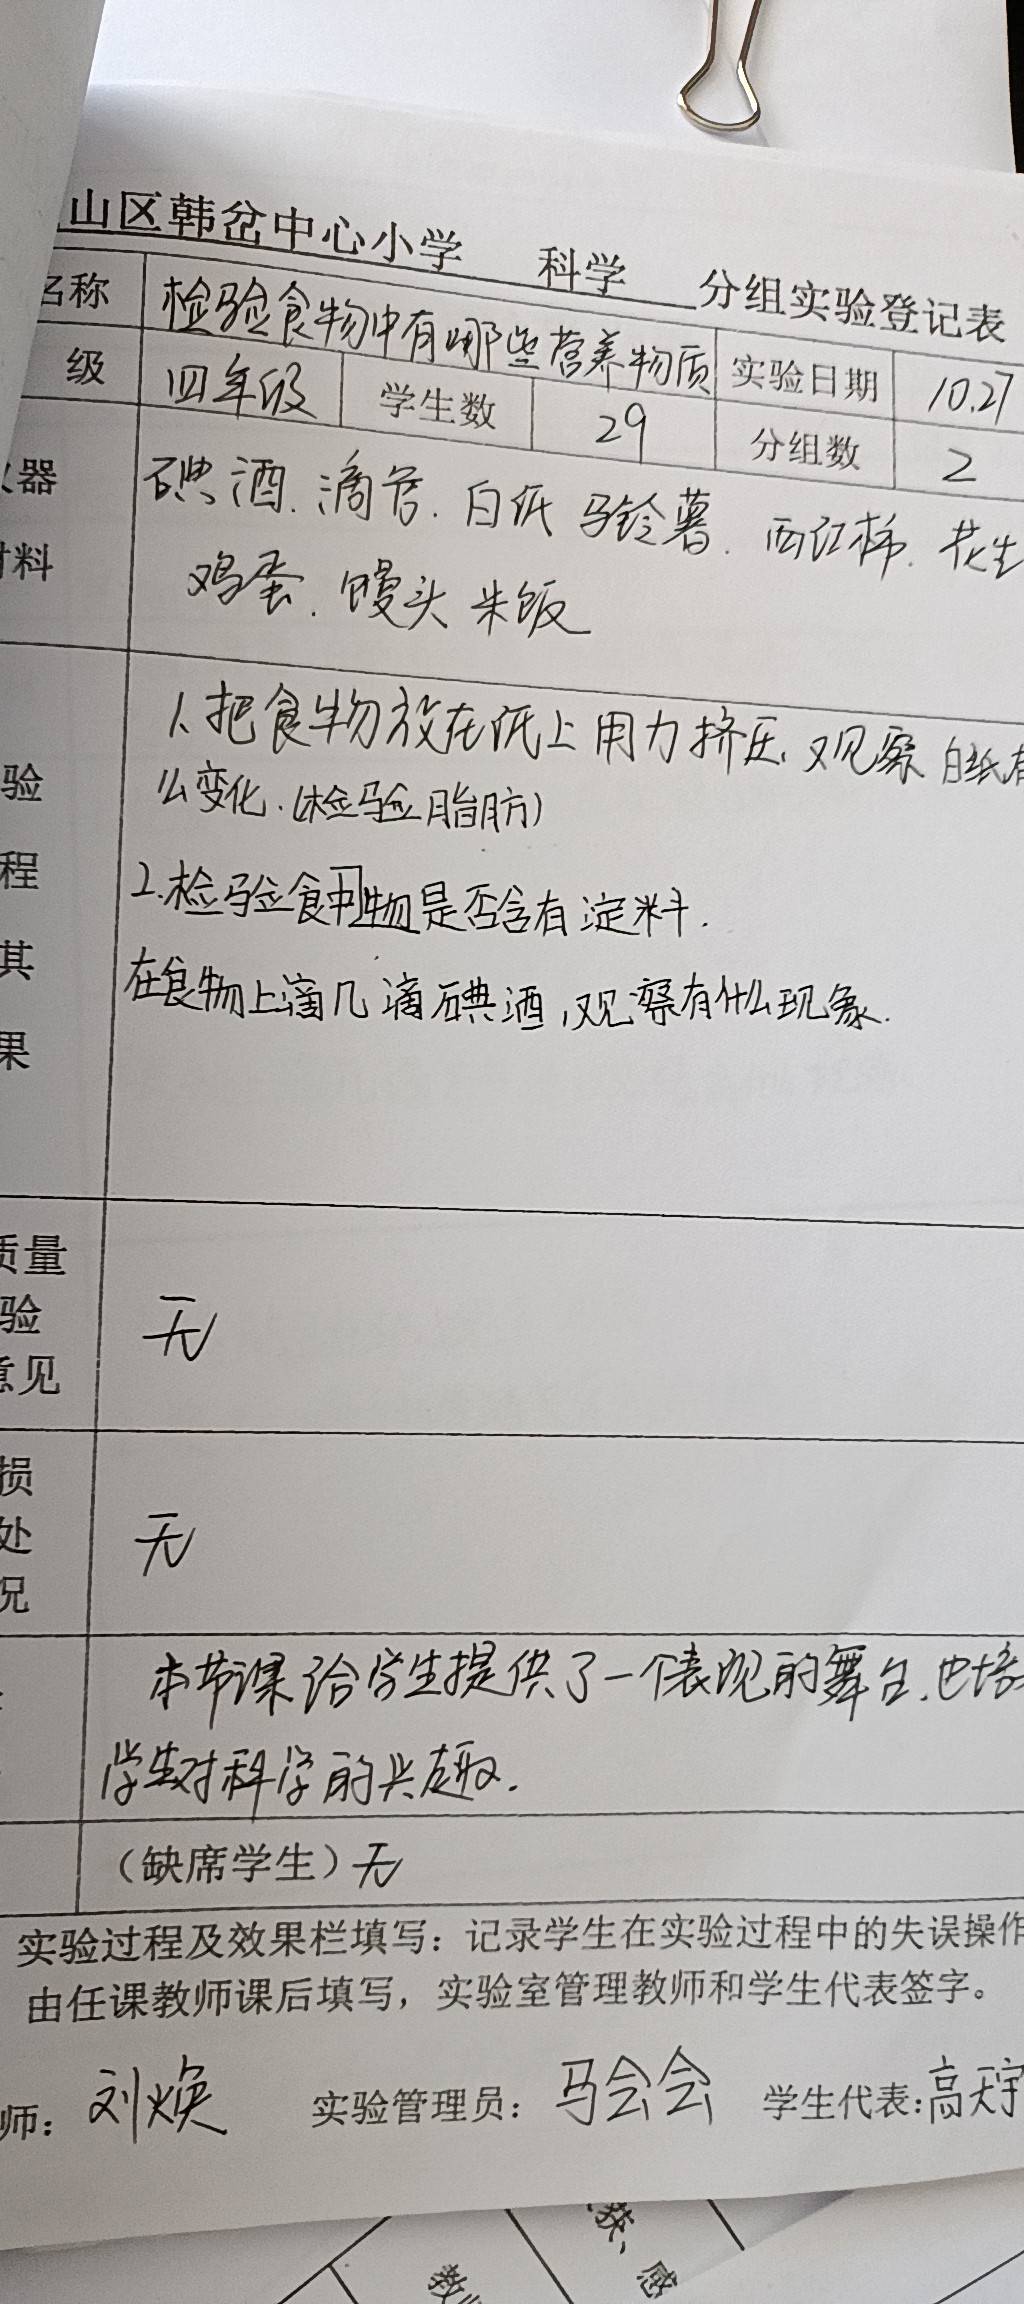 山区韩岔中心小学 科学 分组实验登记表
名称 检验食物中有哪些营养物质 实验日期 10.27
级 四年级 学生数 29 分组数 2
器 碘酒.滴管.白纸 马铃薯.西红柿.花生
材料 鸡蛋.馒头 米饭
1.把食物放在纸上用力挤压,观察白纸有
验 么变化.(检验脂肪)
程 2.检验食中物是否含有淀料.
其 在食物上滴几滴碘酒,观察有什么现象.
果
质量
验 无
意见
损
处 无
况
本节课给学生提供了一个表现的舞台.也培
学生对科学的兴趣.
(缺席学生)无
实验过程及效果栏填写:记录学生在实验过程中的失误操作
由任课教师课后填写,实验室管理教师和学生代表签字。
师: 刘焕 实验管理员: 马会会 学生代表:高天宇
教
感